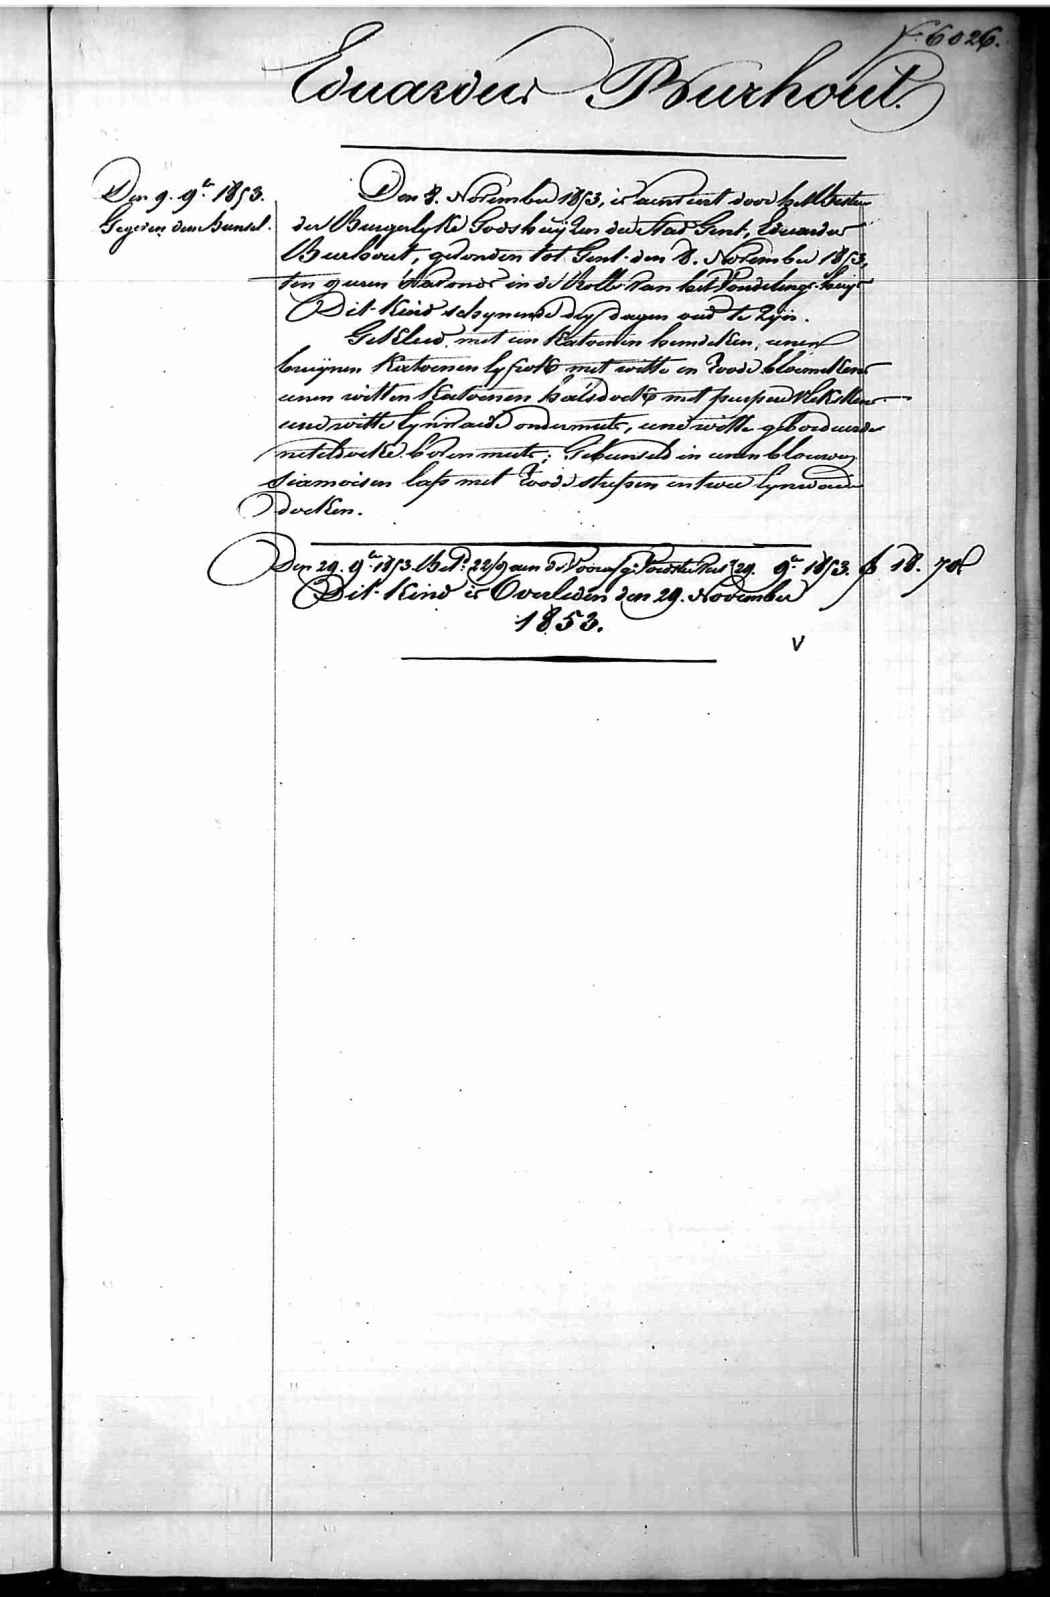 f.º 6026.
Eduardus Burhout.
Den 9. 9.re 1853.
Gegeven den bunsel.
Den 8. November 1853, is aenveirt door het Bestier
der Burgerlyke Godshuyzen der Stad Gent, Eduardus
Burhout, gevonden tot Gent den 8. November 1853,
ten 9 uren 's avonds in de Rolle van het Vondelings-huys
Dit Kind schynende dry dagen oud te zyn.
Gekleed met een Katoenen hemdeken, eenen
bruynen Katoenen lyfrok met witte en roode bloemekens
eenen witten Katoenen halsdoek met purpere vlekskens
eene witte lynwaede ondermuts, eene witte geborduerde
neteldoeke bovenmuts; Gebunseld in eenen blouwen
siamoisen lap met roode strepen en twee lynwaede
doeken.
Den 29. 9.re 1853. Bet.d 22/9 aen de Voorsz. Voedster tot 29. 9.re 1853. f 18. 78
Dit Kind is Overleden den 29. November
1853.
V